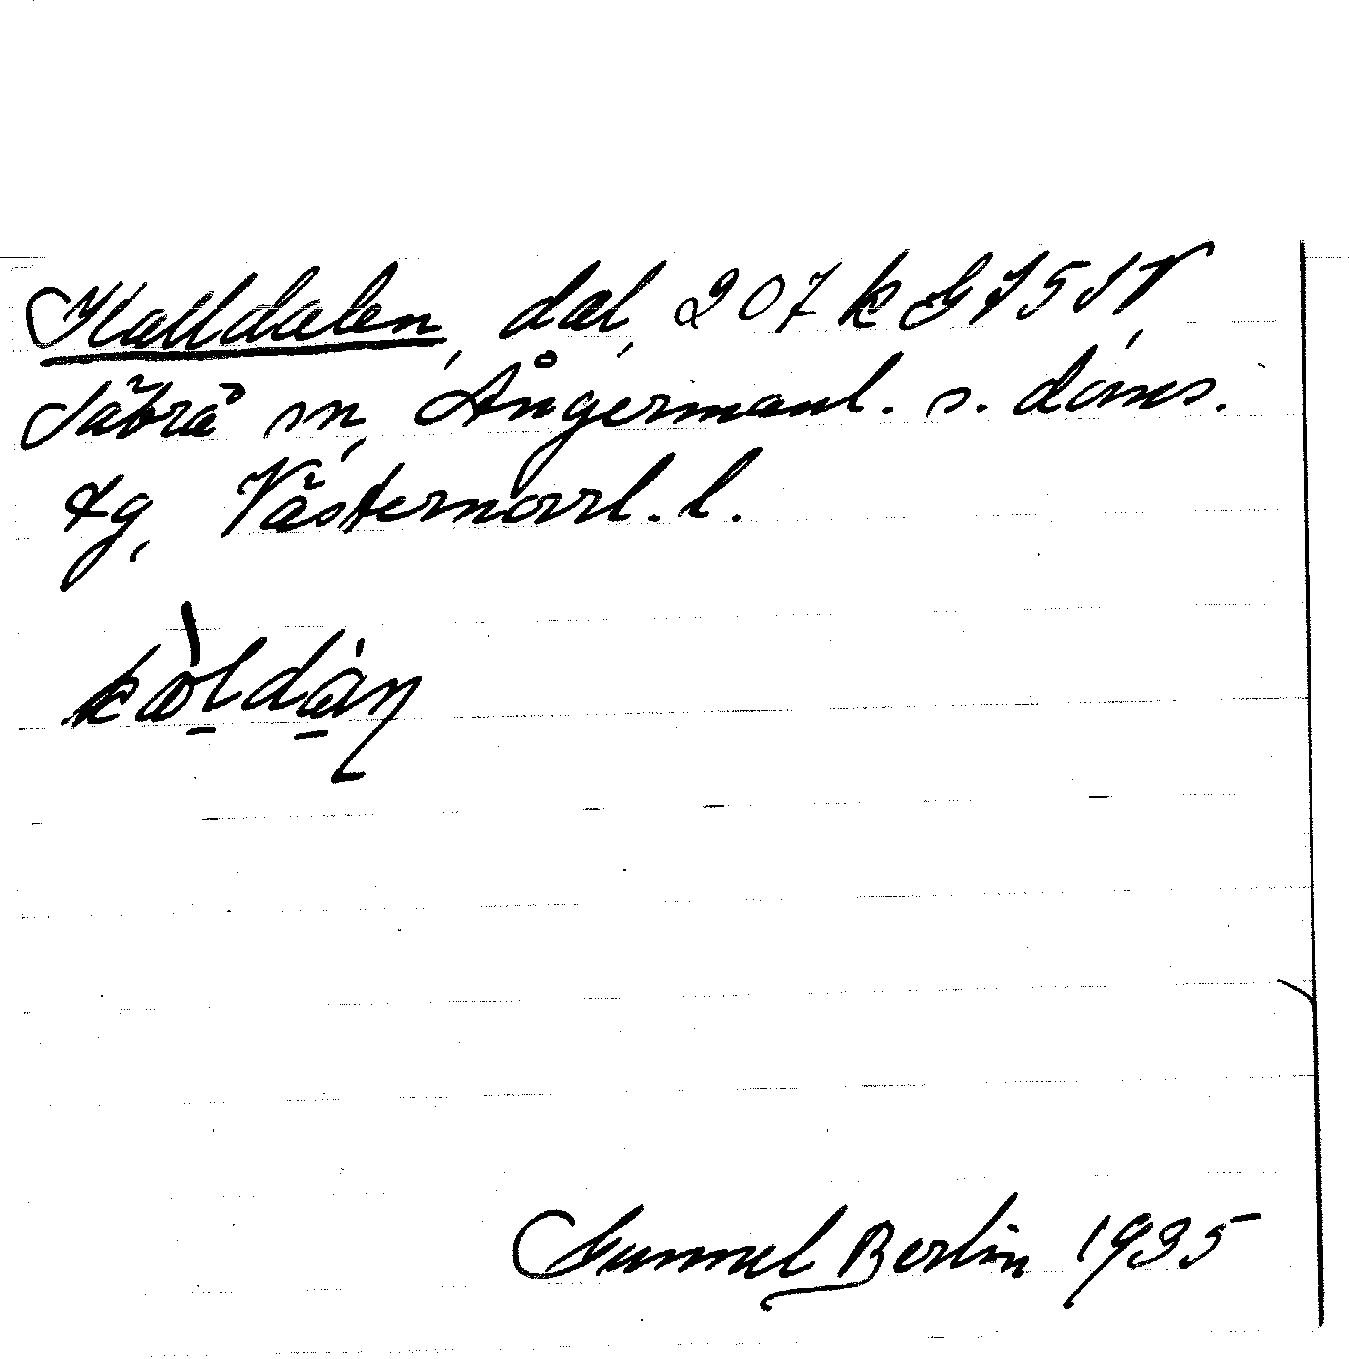 Kalldalen, dal, 207 k G 7 5 SV
Säbrå sn, Ångermanl. s. doms.
tg, Västernorrl. l.
kàldán
Gunnel Berlin 1935